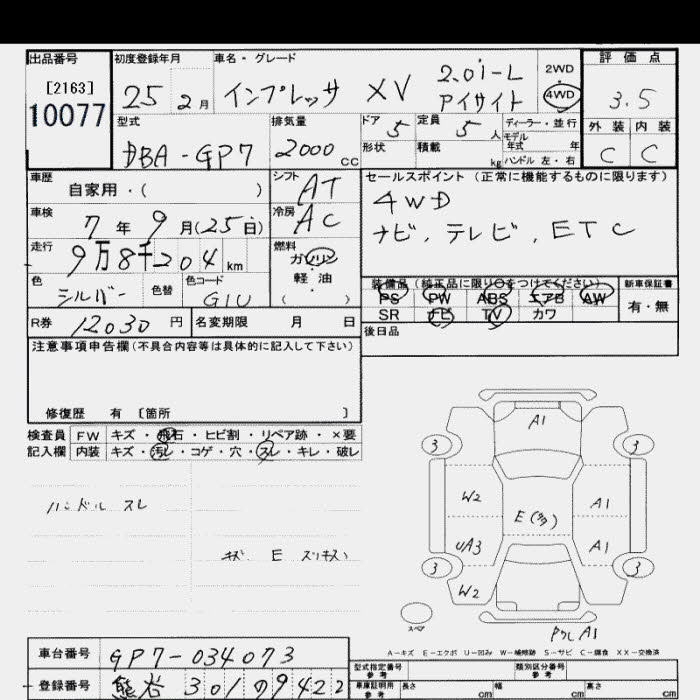 出品番号
[2163]
10077
初度登録年月
25 2月
車名・グレード
インプレッサ XV 2.0i-L
アイサイト
2WD
4WD
評価点
3.5
外装 内装
C C
型式
DBA-GP7
排気量
2000 cc
ドア 5
定員 5 人
形状
積載 kg
ディーラー・並行
モデル年式 年
ハンドル 左・右
車歴
自家用・( )
シフト AT
車検
7年 9月(25日)
冷房 AC
走行
9万8千204 km
燃料
ガソリン
軽油
( )
色
シルバー
色替
色コード
G1U
R券 12030 円
名変期限 月 日
セールスポイント (正常に機能するものに限ります)
4WD
ナビ、テレビ、ETC
装備品(純正品に限り○をつけてください)
PS PW ABS エアB AW
SR ナビ TV カワ
新車保証書
有・無
後日品
注意事項申告欄(不具合内容等は具体的に記入して下さい)
修復歴 有 [箇所 ]
検査員 FW キズ・飛石・ヒビ割・リペア跡・×要
記入欄 内装 キズ・汚レ・コゲ・穴・スレ・キレ・破レ
ハンドル スレ
キズ E スリキズ
A1
3 3
W2
A1
E(多)
UA3
A1
3 3
W2
スペア
A1
A-キズ E-エクボ U-凹み W-補修跡 S-サビ C-腐食 XX-交換済
車台番号 GP7-034073
登録番号 熊谷 301 の 9422
型式指定番号
参考
類別区分番号
参考
車庫証明用
参考
長さ cm 幅 cm 高さ cm